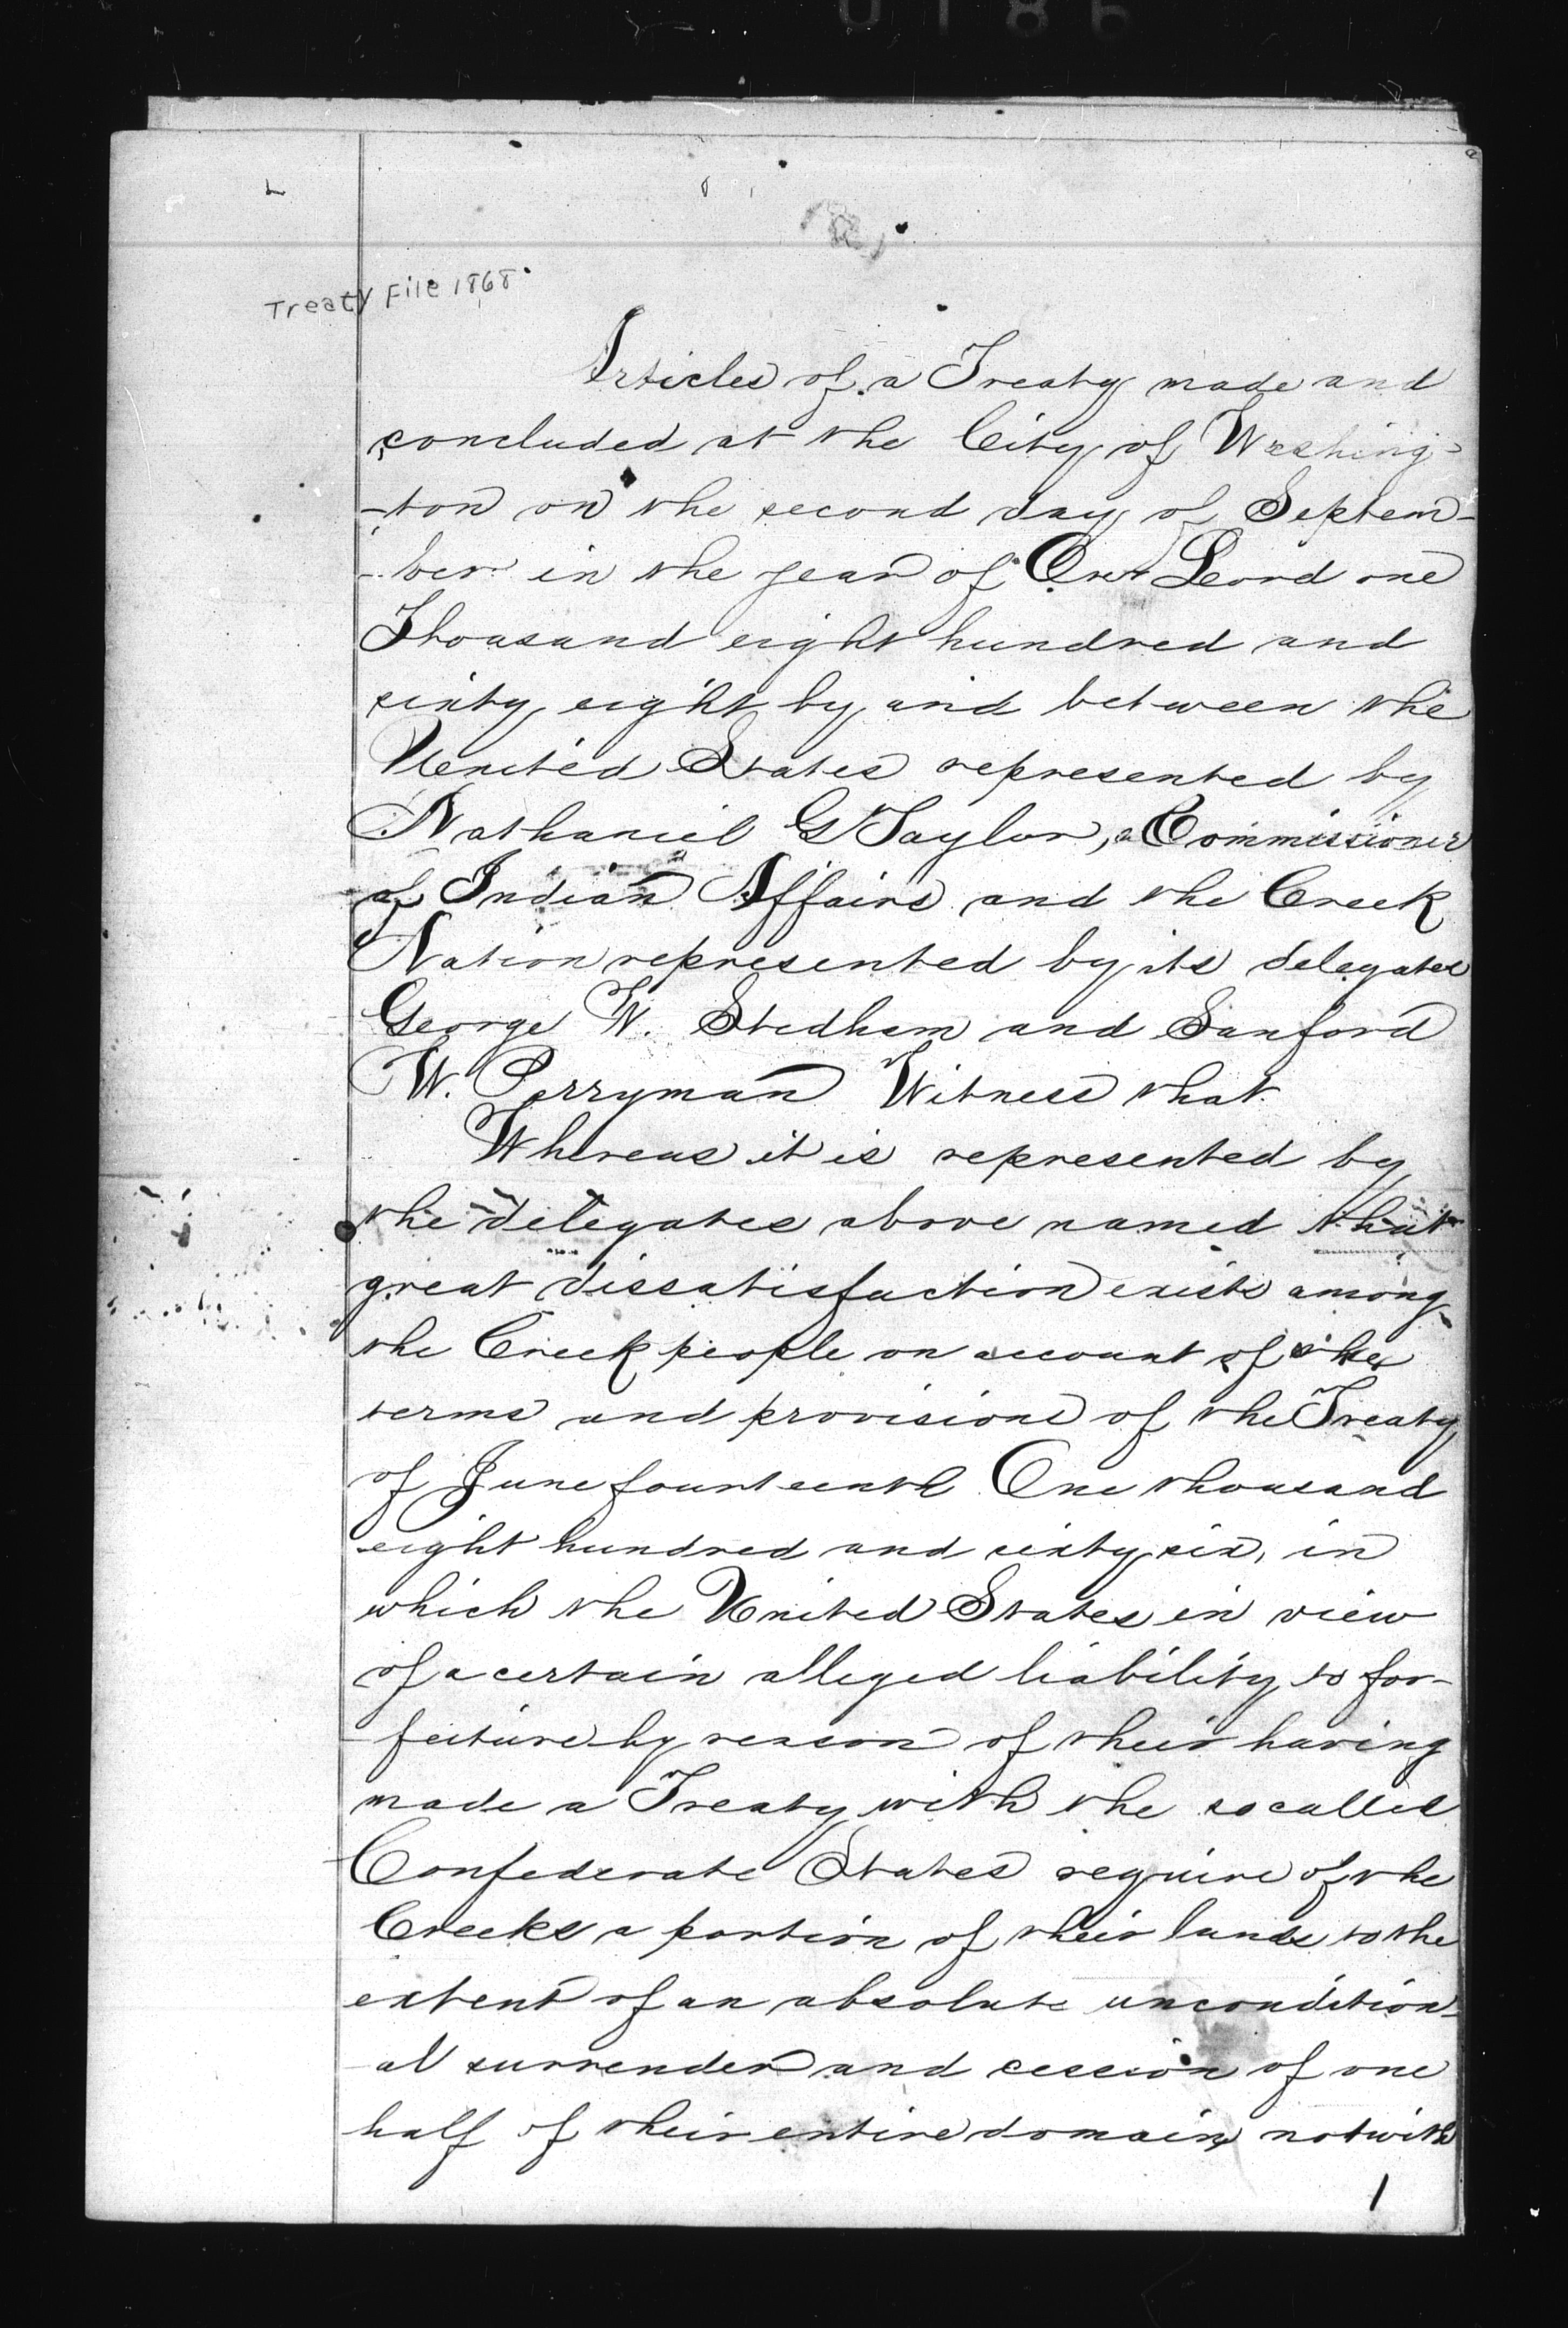 0186
Treaty File 1868
Articles of a Treaty made and
concluded at the City of Washing-
-ton on the second day of Septem-
-ber in the year of Our Lord one
Thousand eight hundred and
sixty eight by and between the
United States represented by
Nathaniel G Taylor, Commissioner
of Indian Affairs and the Creek
Nation represented by its delegates
George W. Stedham and Sanford
W. Perryman Witness that
Whereas it is represented by
the delegates above named that
great dissatisfaction exists among
the Creek people on account of the
terms and provisions of the Treaty
of June fourteenth One thousand
eight hundred and sixty six, in
which the United States in view
of a certain alleged liability to for-
-feiture by reason of their having
made a Treaty with the so called
Confederate States require of the
Creeks a portion of their lands to the
extent of an absolute uncondition-
-al surrender and cession of one
half of their entire domain, notwith
1